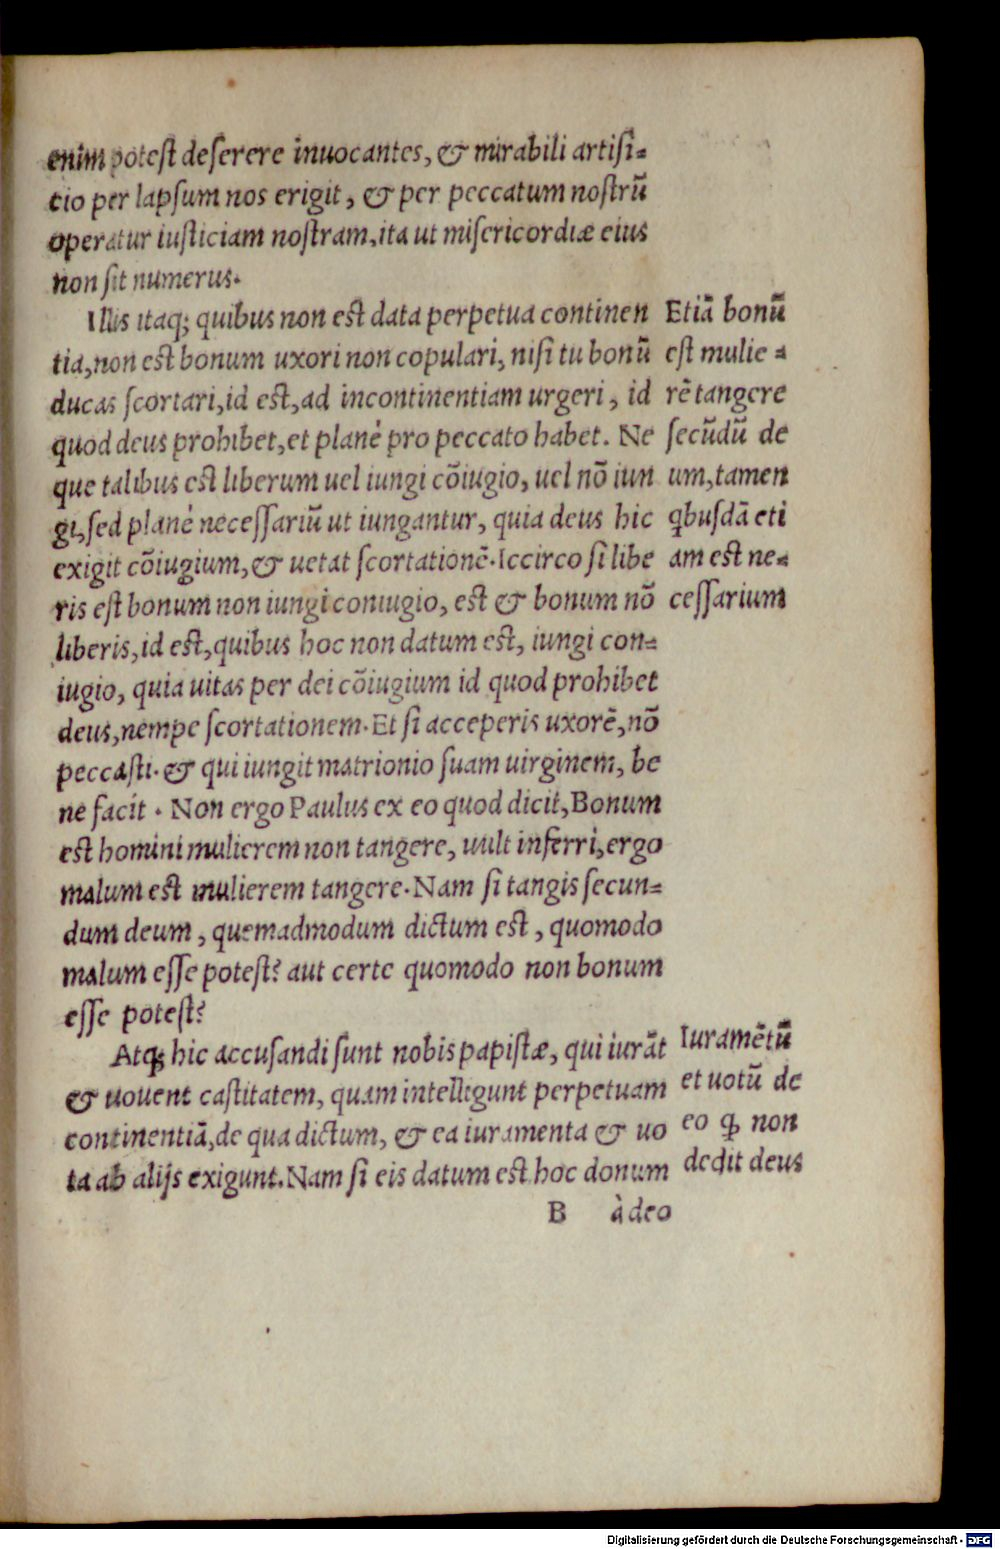 enim potest deserere inuocantes, & mirabili artifi-
cio per lapsum nos erigit, & per peccatum nostrũ
operatur iusticiam nostram, ita ut misericordiæ eius
non sit numerus.
Illis itaq; quibus non est data perpetua continen
tia, non est bonum uxori non copulari, nisi tu bonũ
ducas scortari, id est, ad incontinentiam urgeri, id
quod deus prohibet, et planè pro peccato habet. Ne
que talibus est liberum uel iungi cõiugio, uel nõ iun
gi, sed planè necessariũ ut iungantur, quia deus hic
exigit cõiugium, & uetat scortationẽ. Iccirco si libe
ris est bonum non iungi coniugio, est & bonum nõ
liberis, id est, quibus hoc non datum est, iungi con-
iugio, quia uitas per dei cõiugium id quod prohibet
deus, nempe scortationem. Et si acceperis uxorẽ, nõ
peccasti. & qui iungit matrionio suam uirginem, be
ne facit. Non ergo Paulus ex eo quod dicit, Bonum
est homini mulierem non tangere, uult inferri, ergo
malum est mulierem tangere. Nam si tangis secun-
dum deum, quemadmodum dictum est, quomodo
malum esse potest? aut certe quomodo non bonum
esse potest?
Atq; hic accusandi sunt nobis papistæ, qui iurãt
& uouent castitatem, quam intelligunt perpetuam
continentiã, de qua dictum, & ea iuramenta & uo
ta ab alijs exigunt. Nam si eis datum est hoc donum
B à deo
Etiã bonũ
est mulie-
rẽ tangere
secũdũ de
um, tamen
qbusdã eti
am est ne-
cessarium
Iuramẽtũ
et uotũ de
eo ꝙ non
dedit deus
Digitalisierung gefördert durch die Deutsche Forschungsgemeinschaft - DFG